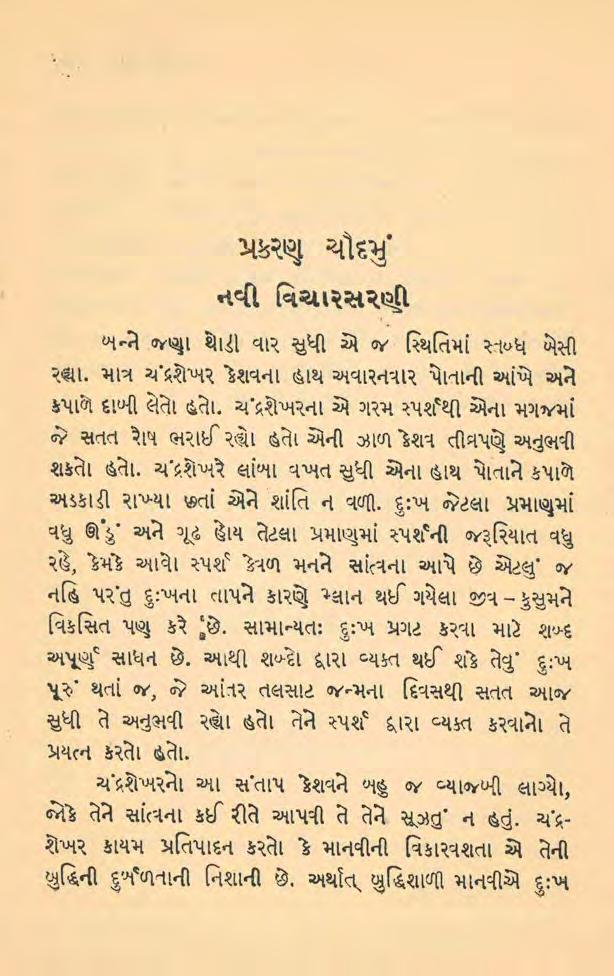 પ્રકરણ ચૌદમું
નવી વિચારસરણી
બન્ને જણા થોડી વાર સુધી એ જ સ્થિતિમાં સ્તબ્ધ બેસી
રહ્યા. માત્ર ચંદ્રશેખર કેશવના હાથ અવારનવાર પોતાની આંખે અને
કપાળે દાબી લેતો હતો. ચંદ્રશેખરના એ ગરમ સ્પર્શથી એના મગજમાં
જે સતત રોષ ભરાઈ રહ્યો હતો એની ઝાળ કેશવ તીવ્રપણે અનુભવી
શકતો હતો. ચંદ્રશેખરે લાંબા વખત સુધી એના હાથ પોતાને કપાળે
અડકાડી રાખ્યા છતાં એને શાંતિ ન વળી. દુઃખ જેટલા પ્રમાણમાં
વધુ ઊંડું અને ગૂઢ હોય તેટલા પ્રમાણમાં સ્પર્શની જરૂરિયાત વધુ
રહે, કેમકે આવો સ્પર્શ કેવળ મનને સાંત્વના આપે છે એટલું જ
નહિ પરંતુ દુઃખના તાપને કારણે મ્લાન થઈ ગયેલા જીવ – કુસુમને
વિકસિત પણ કરે છે. સામાન્યતઃ દુઃખ પ્રગટ કરવા માટે શબ્દ
અપૂર્ણ સાધન છે. આથી શબ્દો દ્વારા વ્યક્ત થઈ શકે તેવું દુઃખ
પૂરું થતાં જ, જે આંતર તલસાટ જન્મના દિવસથી સતત આજ
સુધી તે અનુભવી રહ્યો હતો તેને સ્પર્શ દ્વારા વ્યક્ત કરવાનો તે
પ્રયત્ન કરતો હતો.
ચંદ્રશેખરનો આ સંતાપ કેશવને બહુ જ વ્યાજબી લાગ્યો,
જોકે તેને સાંત્વના કઈ રીતે આપવી તે તેને સૂઝતું ન હતું. ચંદ્ર-
શેખર કાયમ પ્રતિપાદન કરતો કે માનવીની વિકારવશતા એ તેની
બુદ્ધિની દુર્બળતાની નિશાની છે. અર્થાત્ બુદ્ધિશાળી માનવીએ દુઃખ